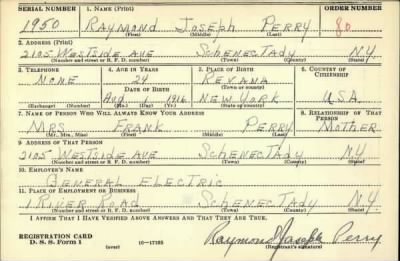 SERIAL NUMBER 1. NAME (Print) ORDER NUMBER
1950 RAYMOND JOSEPH PERRY 80
(First) (Middle) (Last)
2. ADDRESS (Print)
2105 WESTSIDE AVE SCHENECTADY N.Y.
(Number and street or R. F. D. number) (Town) (County) (State)
3. TELEPHONE 4. AGE IN YEARS 5. PLACE OF BIRTH 6. COUNTRY OF CITIZENSHIP
NONE 24 REVANA
DATE OF BIRTH (Town or county)
AUG 1916 NEW YORK U.S.A.
(Exchange) (Number) (Mo.) (Day) (Yr.) (State or country)
7. NAME OF PERSON WHO WILL ALWAYS KNOW YOUR ADDRESS 8. RELATIONSHIP OF THAT PERSON
MRS FRANK PERRY MOTHER
(Mr., Mrs., Miss) (First) (Middle) (Last)
9. ADDRESS OF THAT PERSON
2105 WESTSIDE AVE SCHENECTADY N.Y.
(Number and street or R. F. D. number) (Town) (County) (State)
10. EMPLOYER'S NAME
GENERAL ELECTRIC
11. PLACE OF EMPLOYMENT OR BUSINESS
1 RIVER ROAD SCHENECTADY N.Y.
(Number and street or R. F. D. number) (Town) (County) (State)
I AFFIRM THAT I HAVE VERIFIED ABOVE ANSWERS AND THAT THEY ARE TRUE.
REGISTRATION CARD
D. S. S. Form 1 (over) 16-17105 Raymond Joseph Perry
(Registrant's signature)